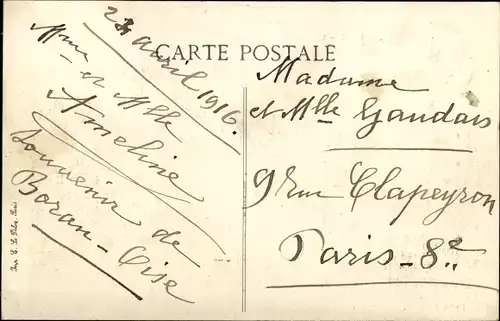 CARTE POSTALE
24 avril 1916.
Mme et Mlle
Ameline
Souvenir de
Boran-Oise
Madame
et Mlle Gaudais
9 Rue Clapeyron
Paris-8e